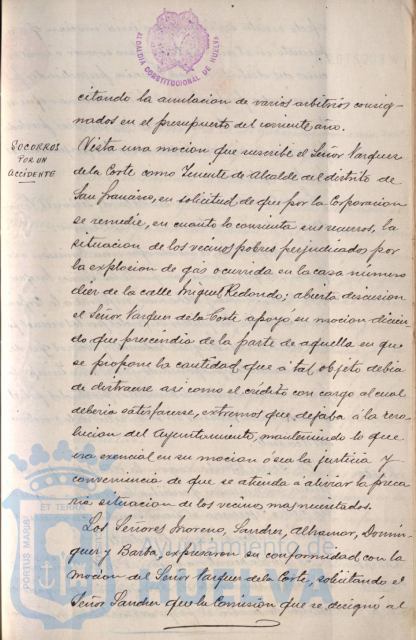 ALCALDIA CONSTITUCIONAL DE HUELVA
citando la anulacion de varios arbitrios consig-
nados en el presupuesto del corriente año.
SOCORROS
POR UN
ACCIDENTE
Vista una mocion que suscribe el Señor Vazquez
de la Corte como Teniente de Alcalde del distrito de
San Francisco, en solicitud de que por la Corporacion
se remedie, en cuanto lo consienta sus recursos, la
situacion de los vecinos pobres perjudicados por
la explosion de gas ocurrida en la casa número
diez de la calle Miguel Redondo; abierta discusion
el Señor Vazquez de la Corte apoyó su mocion dicien-
do que prescindia de la parte de aquella en que
se propone la cantidad que á tal objeto debia
de distraerse asi como el crédito con cargo al cual
deberia satisfacerse, extremos que dejaba á la reso-
lucion del Ayuntamiento, manteniendo lo que
era esencial en su mocion ó sea la justicia y
conveniencia de que se atienda á aliviar la preca-
ria situacion de los vecinos mas necesitados.
Los Señores Moreno, Sanchez, Domin-
guez y Barba, expresaron su conformidad con la
mocion del Señor Vazquez de la Corte, solicitando el
Señor Sanchez que la Comision que se designó al
PORTUS MARIS ET TERRÆ
Ayuntamiento de
HUELVA